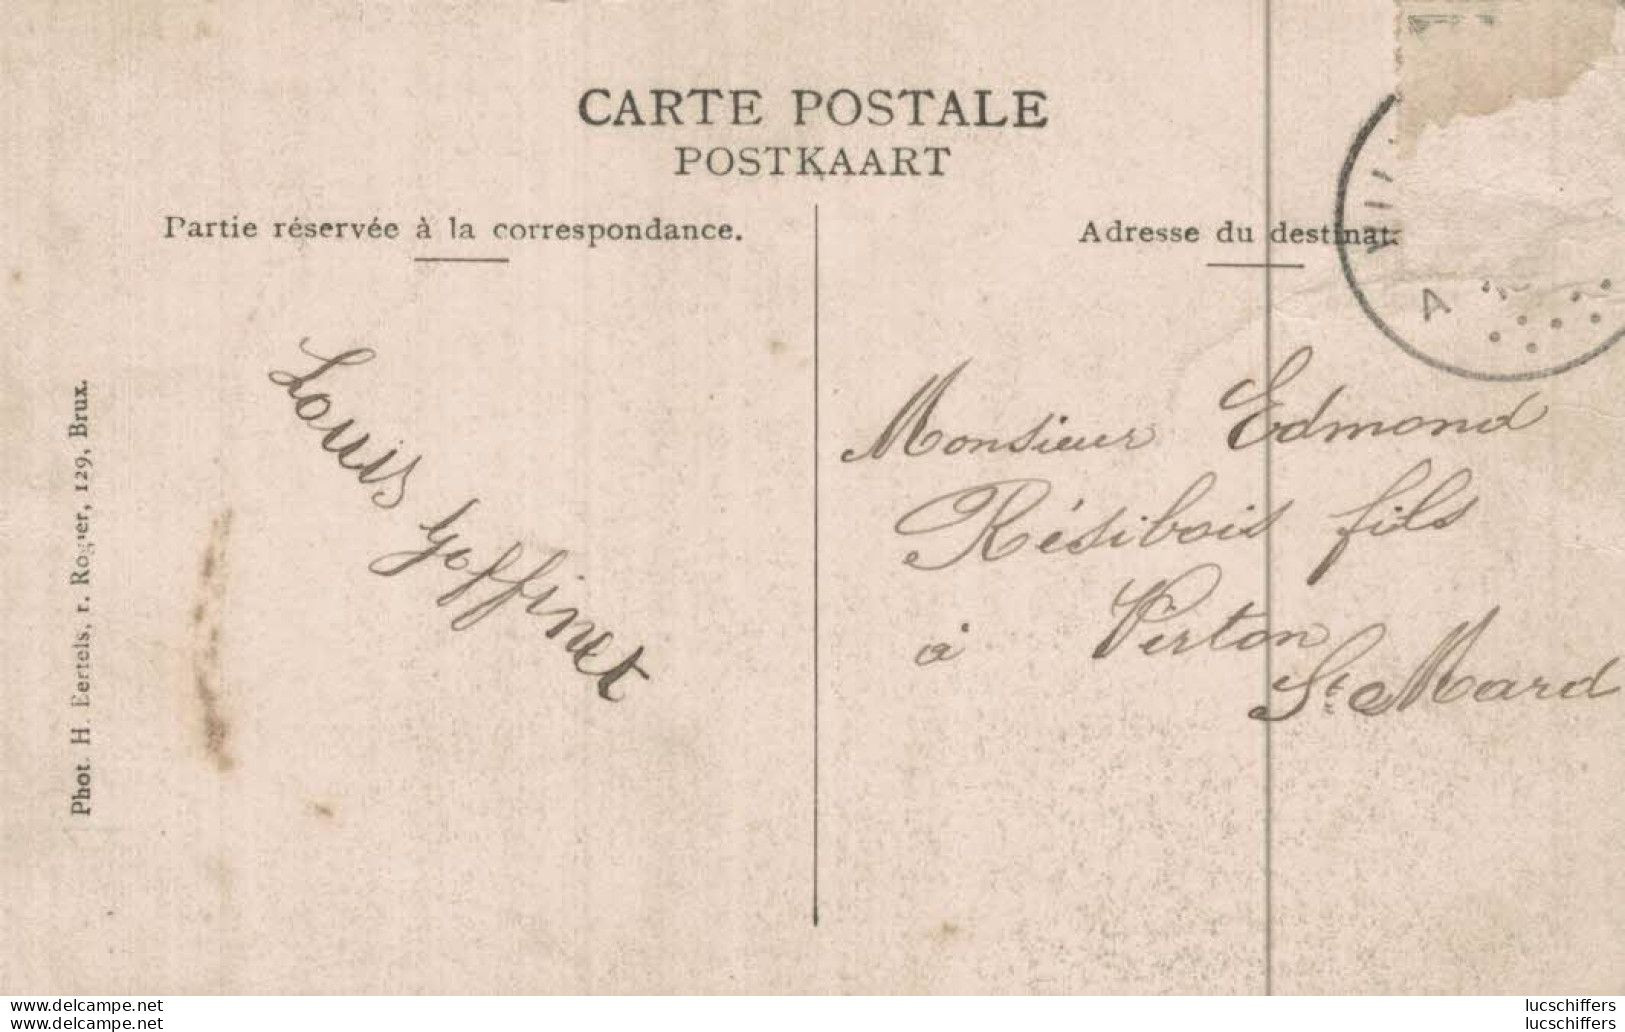 CARTE POSTALE
POSTKAART
Partie réservée à la correspondance.
Adresse du destinat.
Louis Goffinet
Monsieur Edmond
Résibois fils
à Virton
St. Mard
Phot. H. Eertels, r. Rogier, 129, Brux.
www.delcampe.net
www.delcampe.net
lucschiffers
lucschiffers